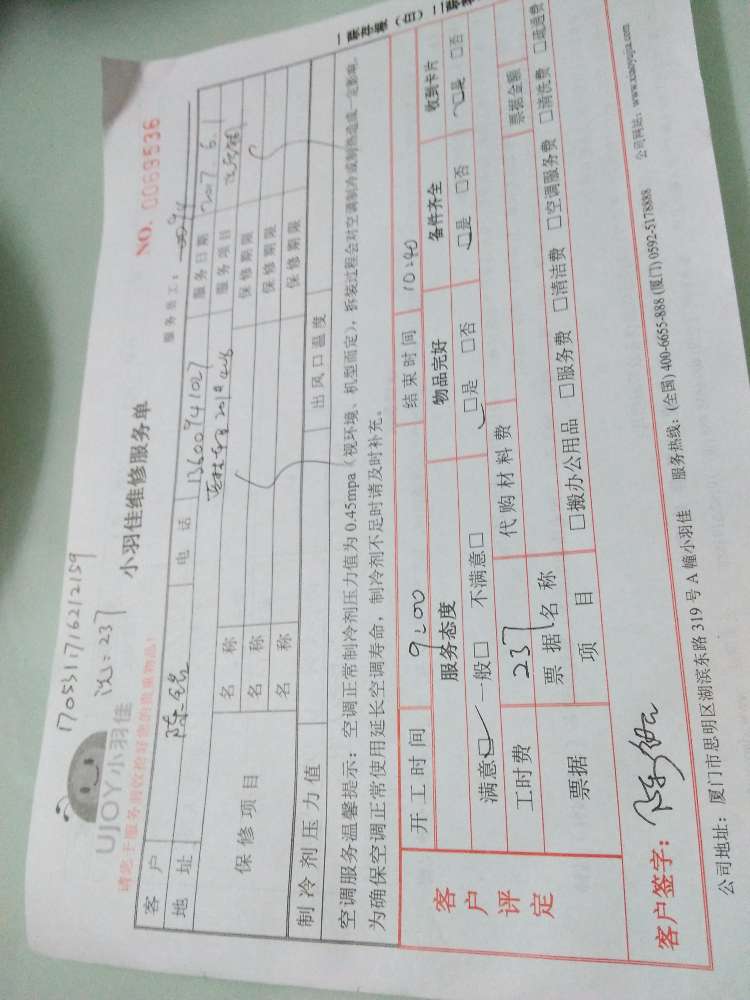 1705311716212159
沈：237
UJOY小羽佳
小羽佳维修服务单
NO. 0069536
服务告工：
客户 电话 13600941027 服务日期 2017 6.1
地址 服务项目
保修项目 名称 保修期限
名称 保修期限
名称 保修期限
制冷剂压力值 出风口温度
空调服务温馨提示：空调正常制冷剂压力值为0.45mpa（视环境、机型而定），拆装过程会对空调制冷或制热造成一定影响。
为确保空调正常使用延长空调寿命，制冷剂不足时请及时补充。
客户评定
开工时间 9:00 结束时间 10:40
服务态度 物品完好 备件齐全 收到卡片
满意□ 一般□ 不满意□ □是 □否 □是 □否 □是 □否
工时费 237 代购材料费 票据金额
票据 票据名称
项目 □搬办公用品 □服务费 □清洁费 □空调服务费 □清洗费 □疏通费
客户签字：
公司地址：厦门市思明区湖滨东路319号A幢小羽佳 服务热线：(全国) 400-6655-888 (厦门) 0592-5178888 公司网站：www.xiaoyujia.com